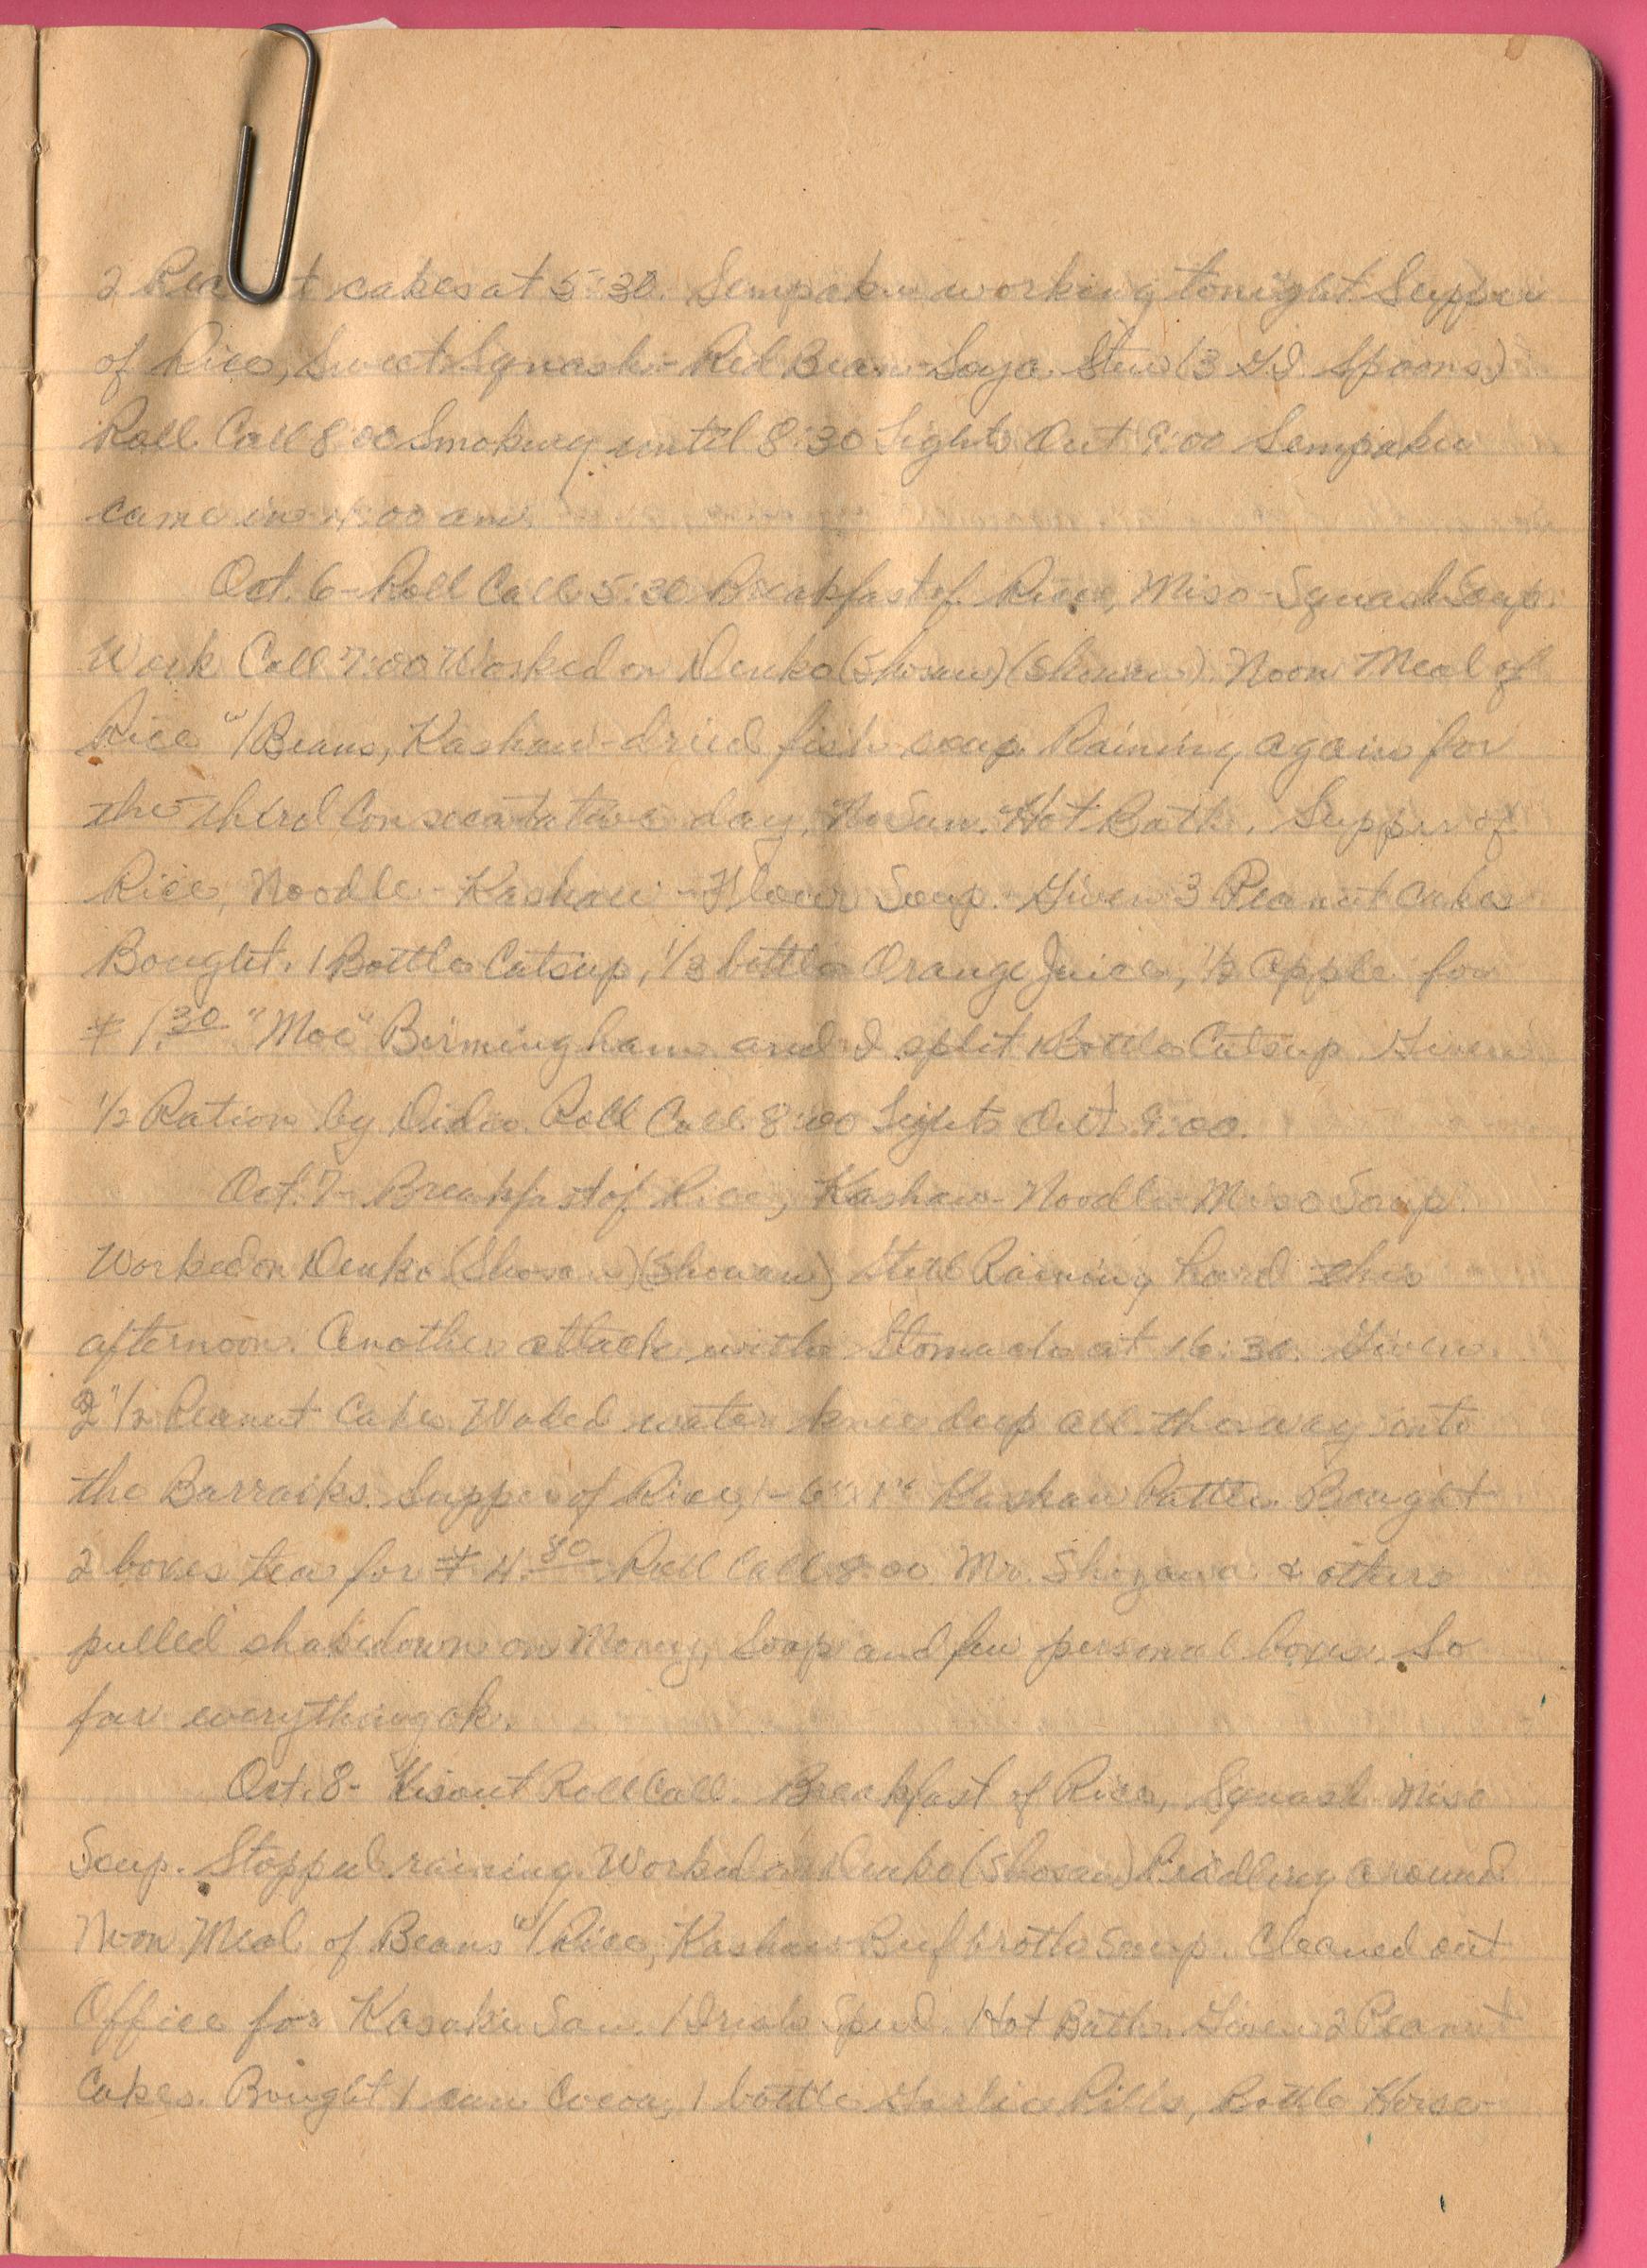 2 Pea t cakes at 5:30. Sempaku working tonight Supper
of Rice, Sweet Squash-Red Bean-Soya Stew (3 GI Spoons)
Roll Call 8:00 Smoking until 8:30 Lights Out 9:00 Sempaku
came in :00 am.
Oct. 6- Roll Call 5:30 Breakfast of Rice, Miso-Squash Soup.
Work Call 7:00 Worked on Denko (Shosan) (Showan). Noon Meal of
Rice w/Beans, Kashaw-dried fish soup. Raining again for
the third day. No Sun. Hot Bath. Supper of
Rice, Noodle-Kashaw-Flour Soup.- Given 3 Peanut Cakes
Bought. 1 Bottle Catsup, 1/3 bottle Orange Juice, 1/2 apple for
¥ 1.30 "Moe" Birmingham and I split 1 Bottle Catsup Given
1/2 Ration by Roll Call 8:00 Lights Out 9:00.
Oct. 7- Breakfast of Rice, Kashaw-Noodle-Miso Soup.
Worked on Denko (Shosan) (Showan) Still Raining hard this
afternoon. Another attack with Stomach at 16:30. Given
2 1/2 Peanut Cake. Waded water knee deep all the way into
the Barracks. Supper of Rice, 1-6" 1" Kashaw Pattie. Bought
2 boxes tea for ¥ 4.80 Roll Call 8:00 Mr. & others
pulled shakedown on Money, Soap and few personal boxes. So
far everything ok.
Oct. 8- Roll Call. Breakfast of Rice, Squash Miso
Soup. Stopped raining. Worked on Denko (Shosan) Piddling around
Noon Meal of Beans w/Rice, Kashaw Beef broth Soup. Cleaned out
Office for Kasaki San. Hot Bath. Given 2 Peanut
Cakes. Bought 1 can Cocoa, 1 bottle Garlic Pills, Bottle Horse-